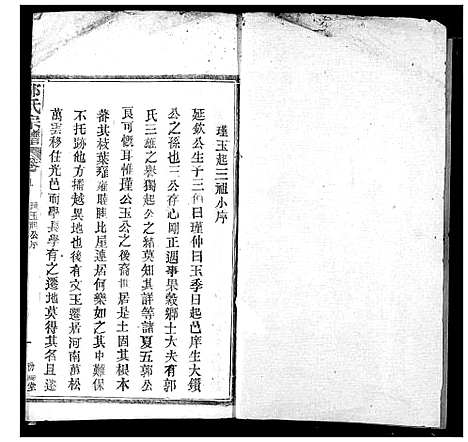 瑾玉起三祖小序
延欽公生子三伯曰瑾仲曰玉季曰起邑庠生大鑽
公之孫也三公存心剛正遇事果毅鄉士大夫有郭
氏三雄之譽獨起公之緒莫知其詳等諸夏五郭公
良可慨耳惟瑾公玉公之後裔世居是土固其根本
蕃其枝葉雍雍睦睦比屋連居何樂如之其中難保
不托跡他方播越異地也後有文玉遷居河南萬松
萬雲移住光邑而學長學有之遷地莫得其名且遂
氏宗譜 卷
玉起公序